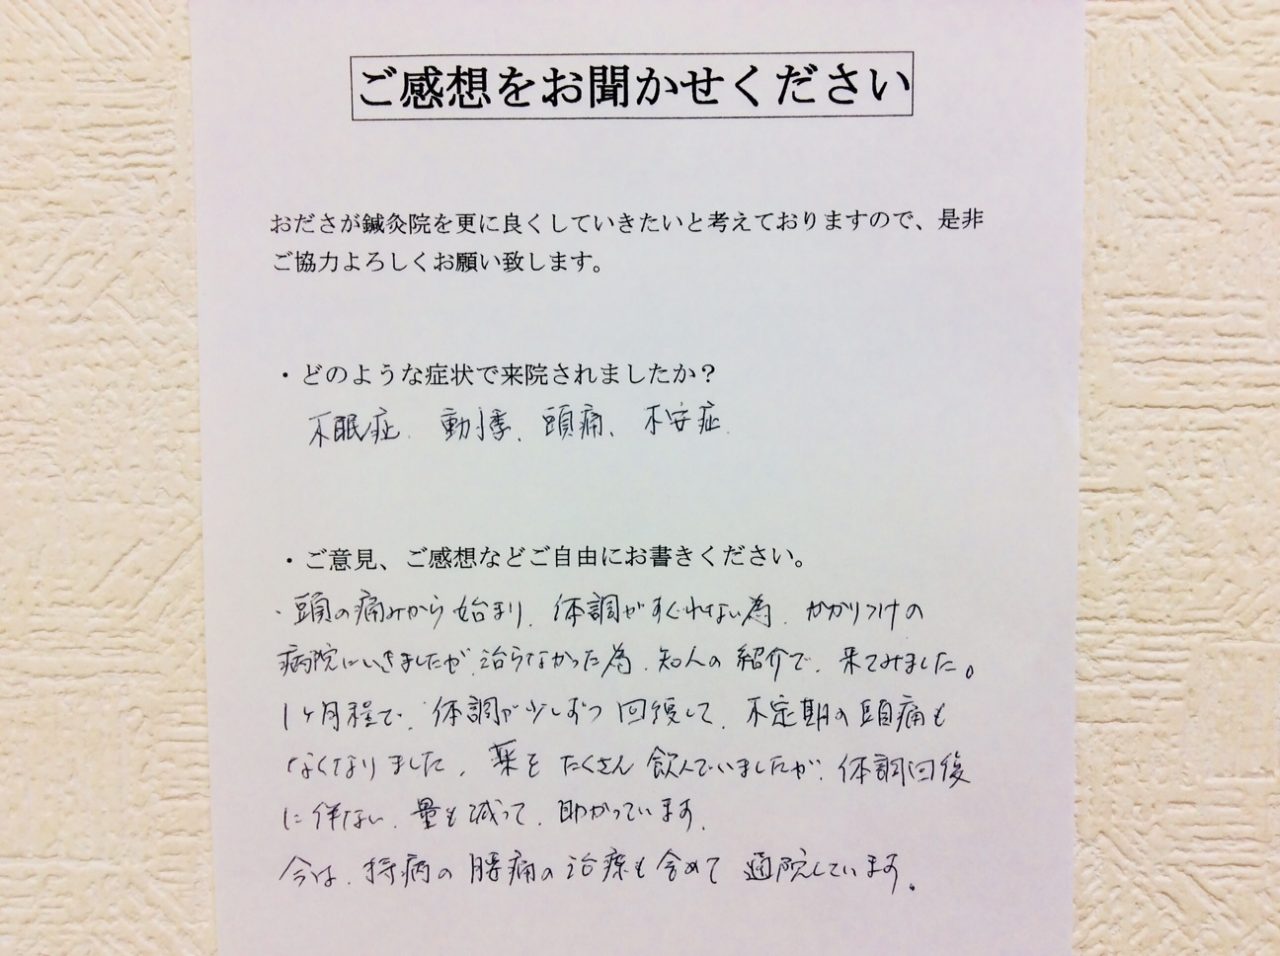 ご感想をお聞かせください
おださが鍼灸院を更に良くしていきたいと考えておりますので、是非
ご協力よろしくお願い致します。
・どのような症状で来院されましたか？
不眠症、動悸、頭痛、不安症
・ご意見、ご感想などご自由にお書きください。
・頭の痛みから始まり、体調がすぐれない為、かかりつけの
病院にいきましたが、治らなかった為、知人の紹介で、来てみました。
1ヶ月程で、体調が少しずつ回復して、不定期の頭痛も
なくなりました。薬をたくさん飲んでいましたが、体調回復
に伴ない、量も減って、助かっています。
今は、持病の腰痛の治療も含めて通院しています。